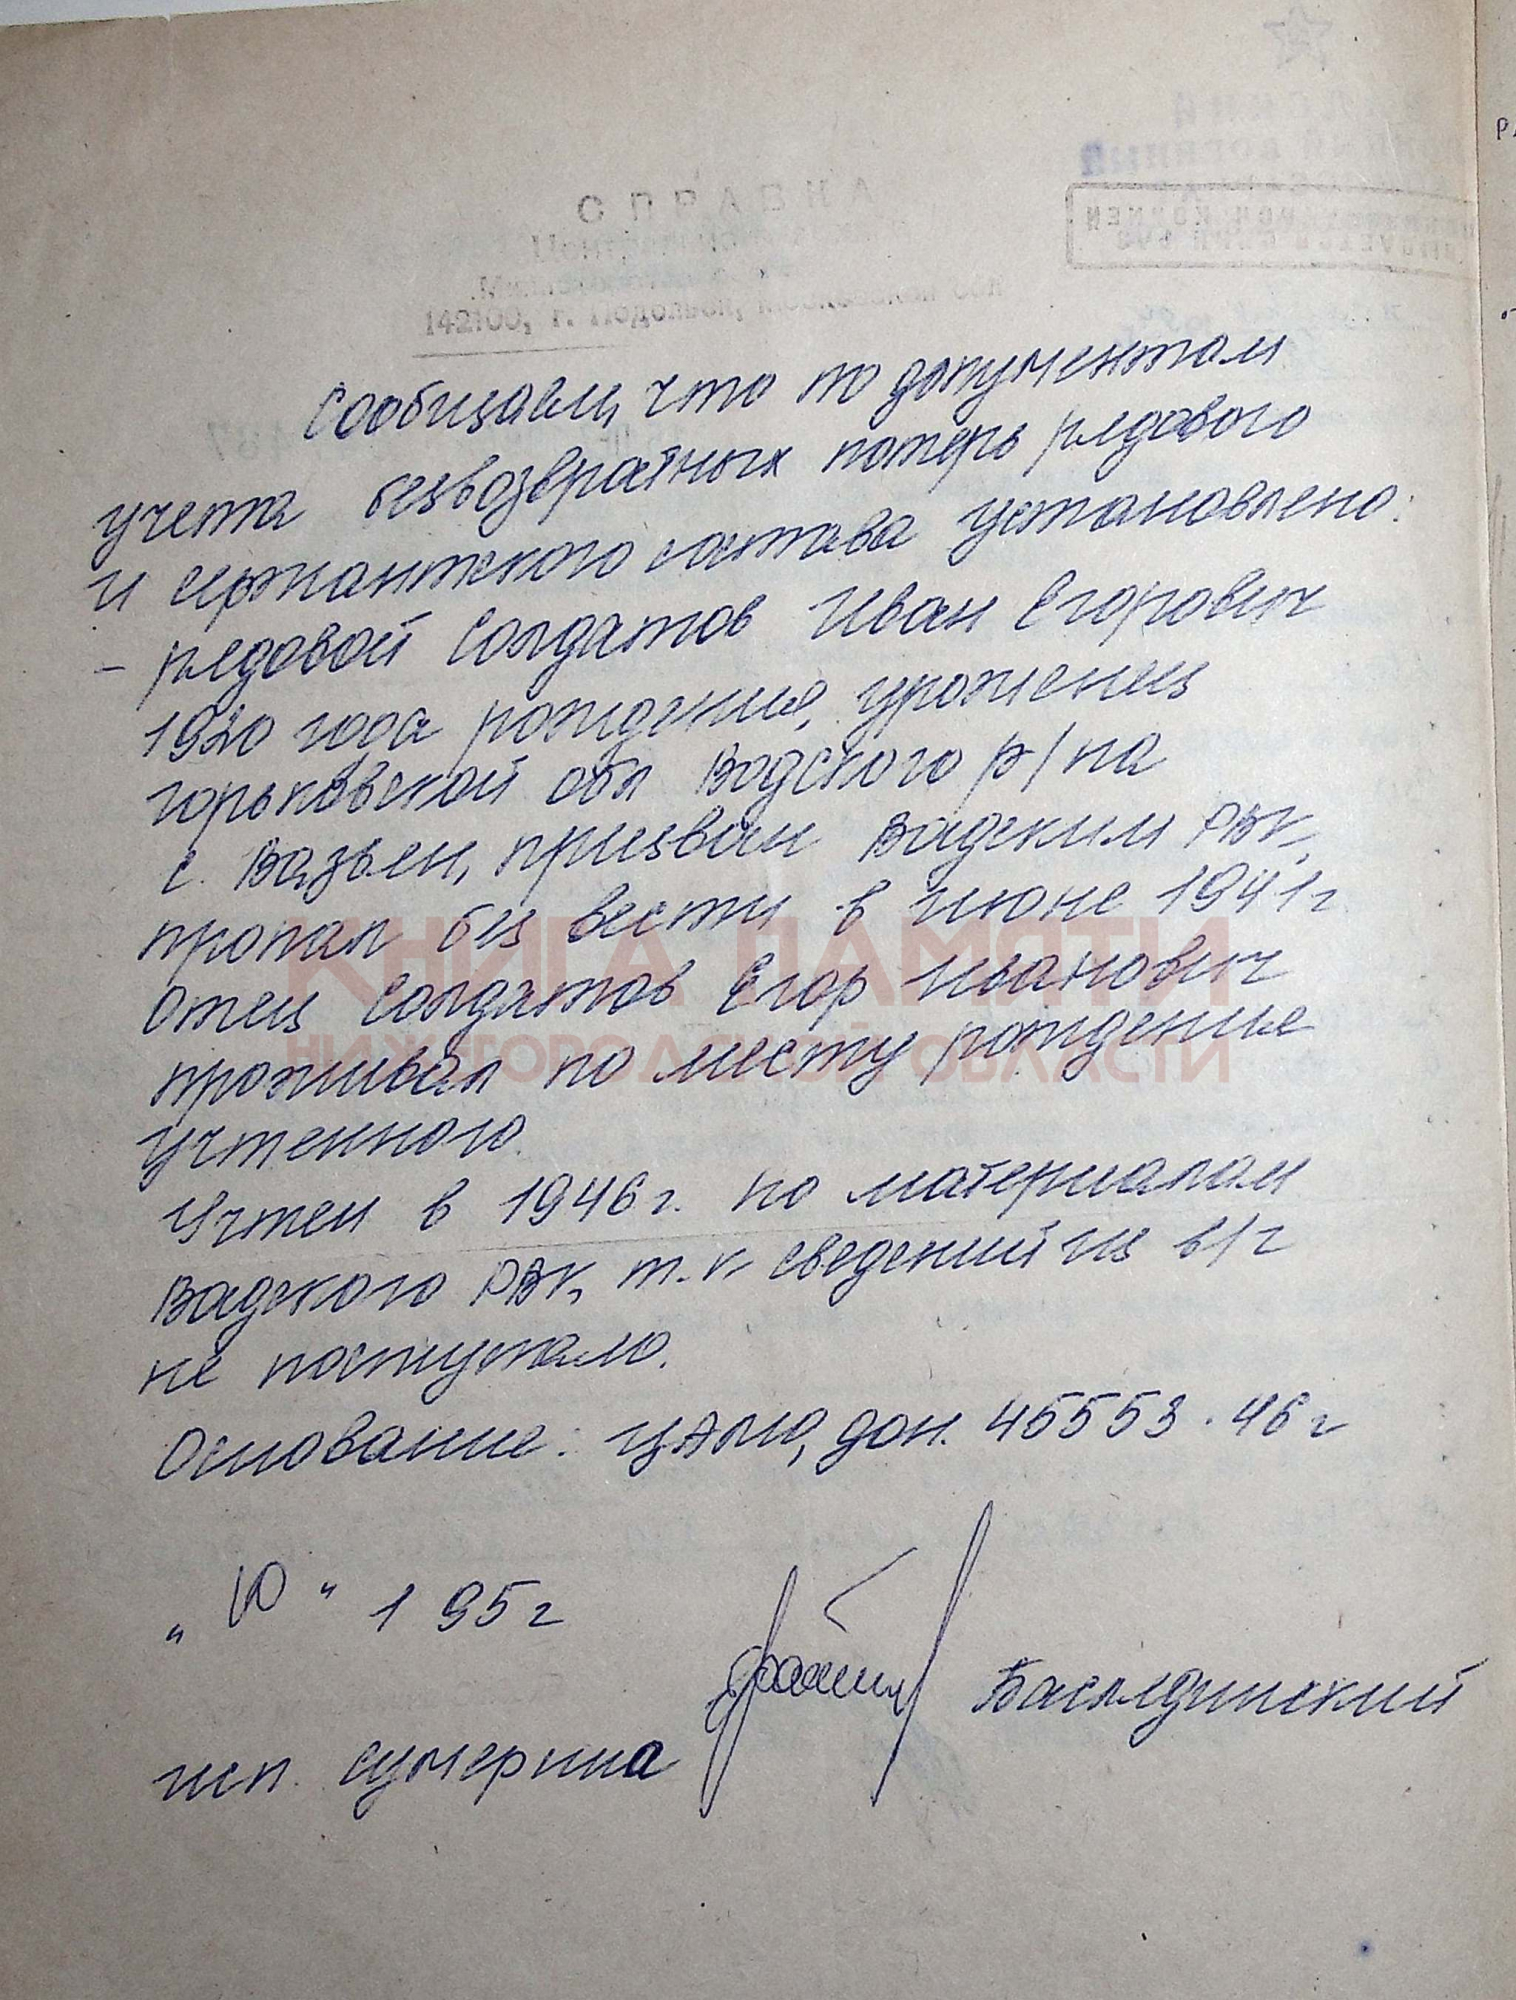 СПРАВКА
142100, г. Подольск, Московской обл
Сообщаем, что по документам
учета безвозвратных потерь рядового
и сержантского состава установлено:
– рядовой Солдатов Иван Егорович
1920 года рождения, уроженец
Горьковской обл Вадского р/на
с. Вазьян, призван Вадским РВК,
пропал без вести в июне 1941г
Отец Солдатов Егор Иванович
проживал по месту рождения
учтенного.
Учтен в 1946г. по материалам
Вадского РВК, т.к. сведений из в/ч
не поступало.
Основание: ЦАМО, дон. 45553. 46г
„10" 1 95г
Басладинский
исп. Сумерина
КНИГА ПАМЯТИ
НИЖЕГОРОДСКОЙ ОБЛАСТИ